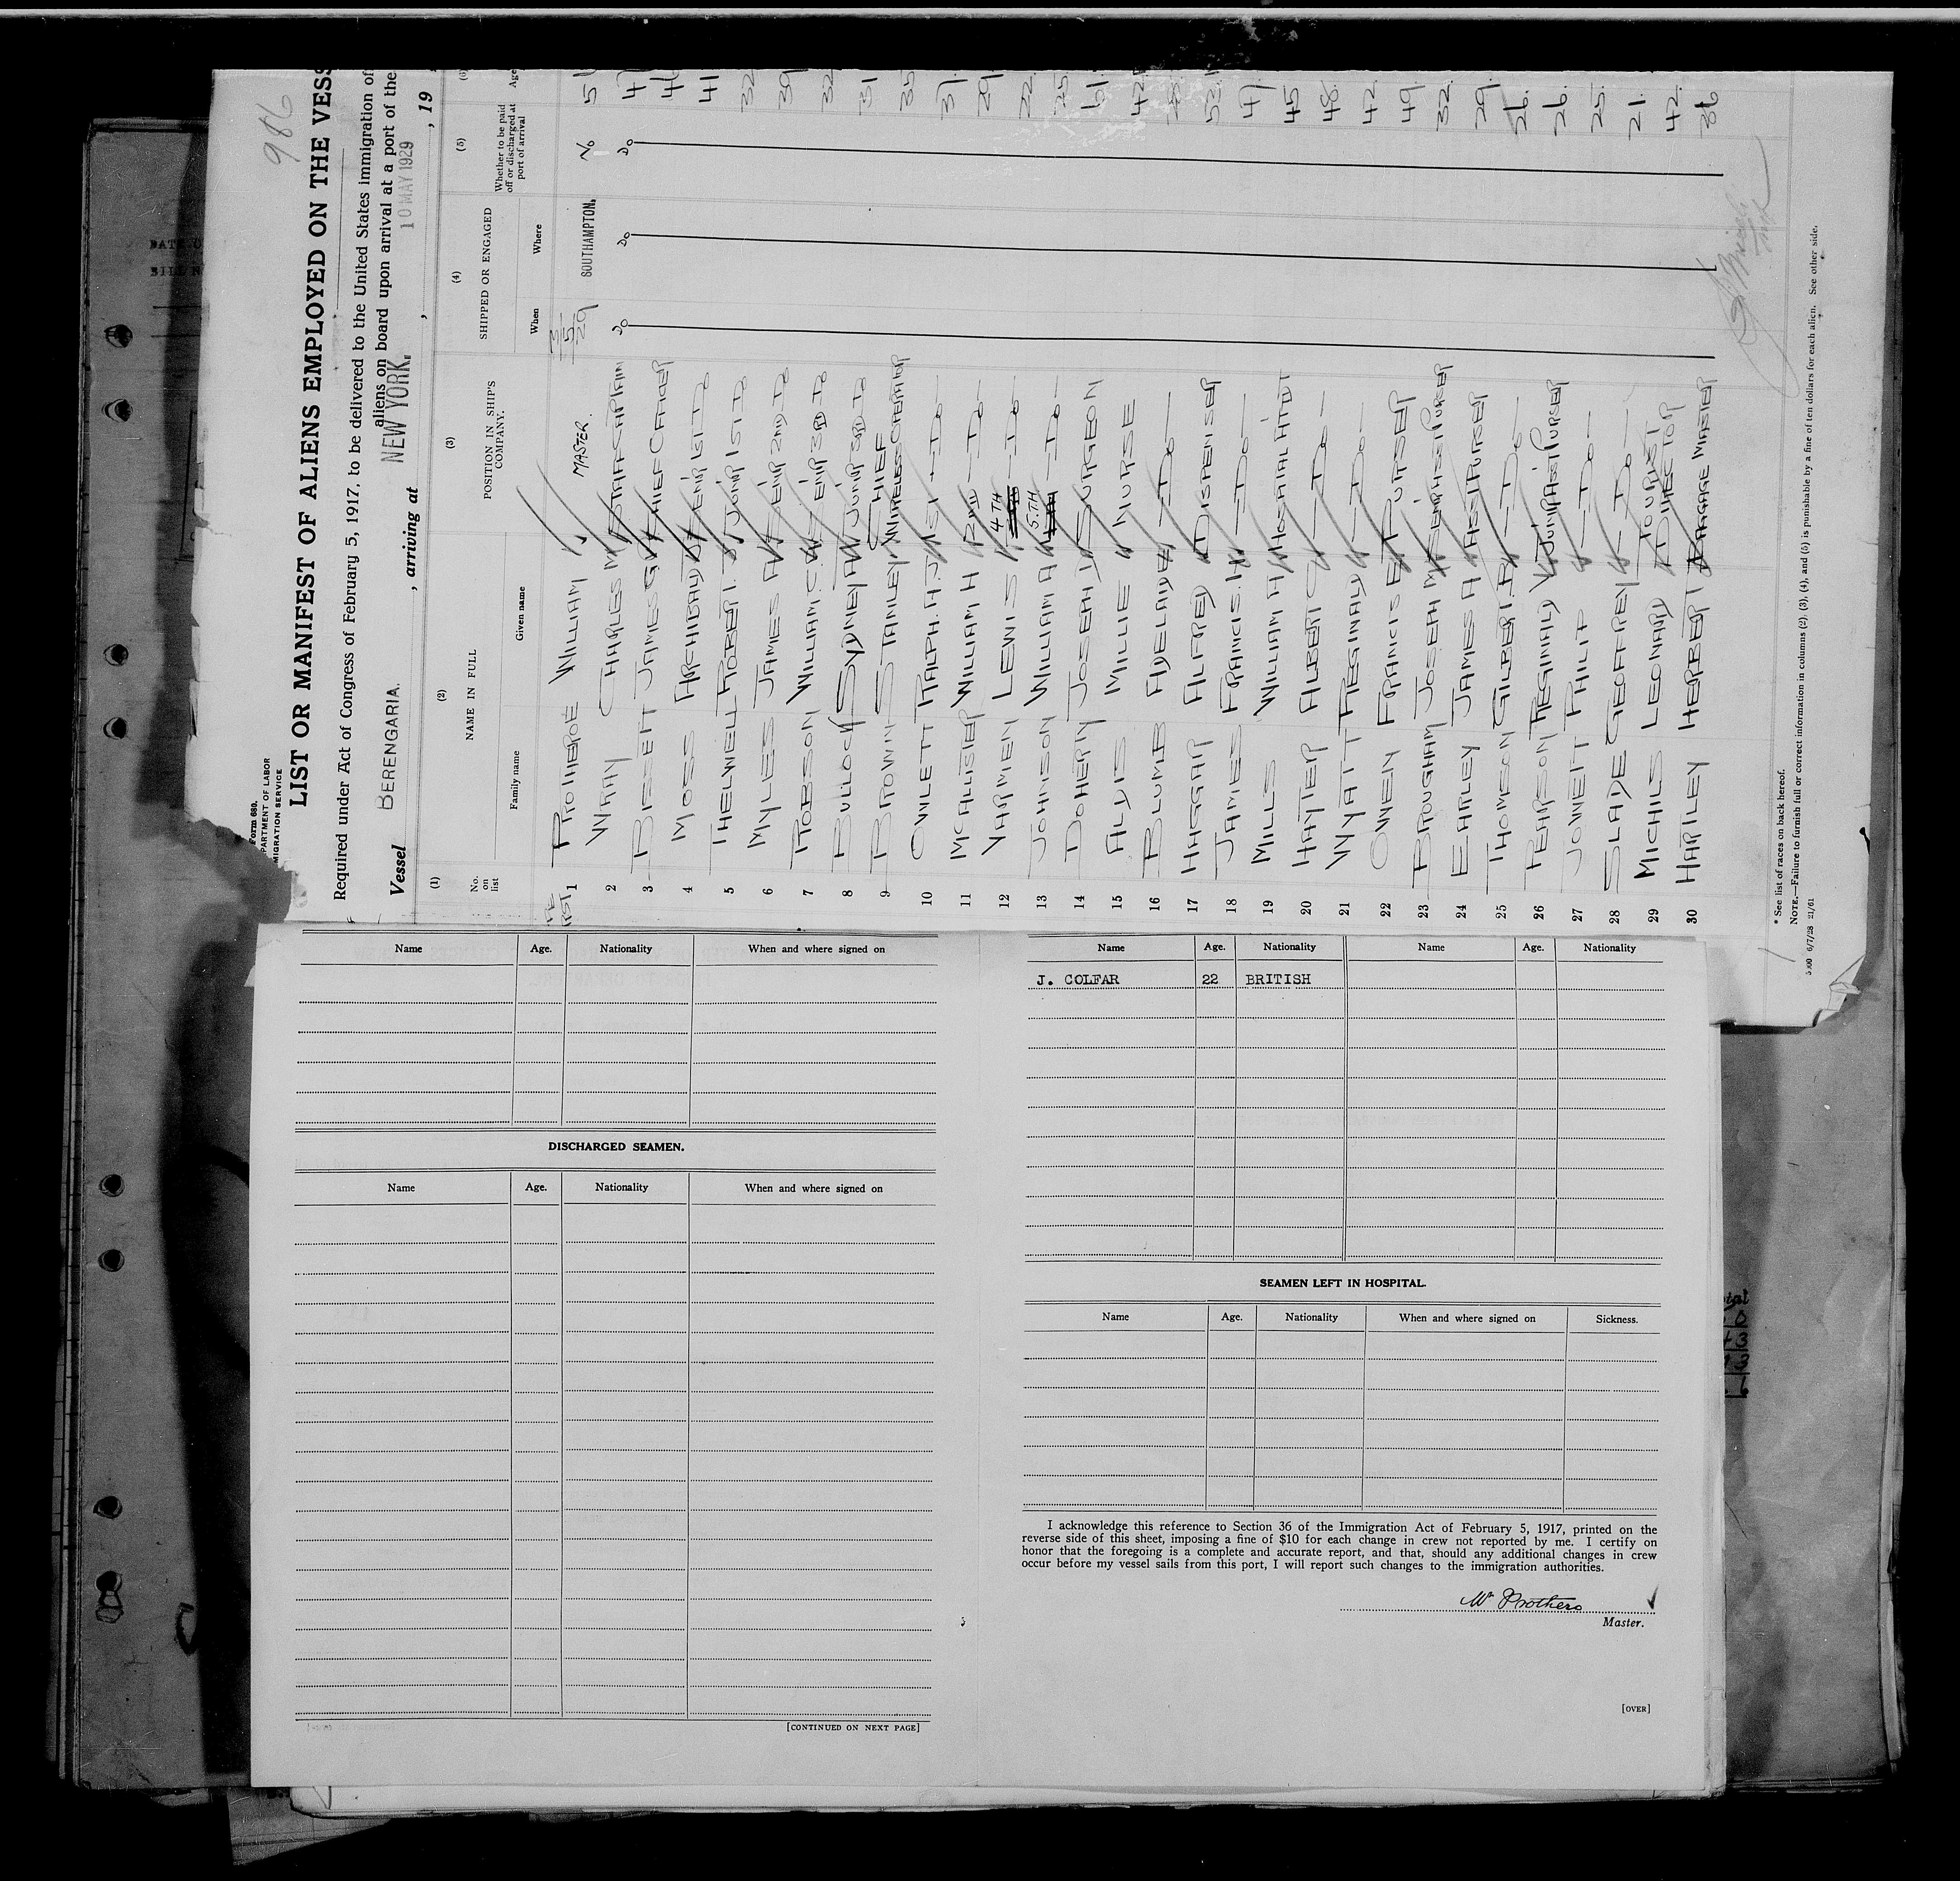 986
Form 689.
LIST OR MANIFEST OF ALIENS EMPLOYED ON THE VESS
Required under Act of Congress of February 5, 1917, to be delivered to the United States immigration of
aliens on board upon arrival at a port of the
Vessel BERENGARIA. , arriving at NEW YORK. , 10 MAY 1929 , 19
(1) (2) (3) (4) (5) (6)
No. on list NAME IN FULL POSITION IN SHIP'S COMPANY. SHIPPED OR ENGAGED Whether to be paid off or discharged at port of arrival Age
Family name Given name When Where
1 PROTHEROE WILLIAM MASTER. 3/5/29 SOUTHAMPTON. No 51
2 WRAY CHARLES M STAFF CAPTAIN Do Do Do 47
3 BISSETT JAMES G CHIEF OFFICER 46
4 MOSS ARCHIBALD SENR 1ST DO 41
5 THELWELL ROBERT. JUNR 1ST DO 32
6 MYLES JAMES A SENR 2ND DO 39
7 ROBSON WILLIAM. C. W. SENR 3RD DO 32
8 BULLOCK SYDNEY A W JUNR 3RD DO 31
9 BROWN STANLEY CHIEF WIRELESS OPERATOR 35
10 OWLETT RALPH. A. J 1ST — Do — 37.
11 MCALLISTER WILLIAM H 2ND — Do — 29.
12 VARMIEN LEWIS S 4TH — Do 22.
13 JOHNSON WILLIAM A 5.TH — Do — 25.
14 DOHERTY JOSEPH SURGEON 61.
15 ALDIS MILLIE NURSE 42
16 BLUMB ADELAIDE — Do —
17 HAGGAR ALFREY DISPENSER 52.
18 JAMES FRANCIS. H — Do — 47.
19 MILLS WILLIAM A HOSPITAL ATTDT 45
20 HAYTER ALBERT G — Do — 48.
21 WYATT REGINALD — Do — 42.
22 OWEN FRANCIS E PURSER 49.
23 BROUGHAM JOSEPH M SENR ASST PURSER 32.
24 EARLEY JAMES A ASST PURSER 29.
25 THOMSON GILBERT. B — Do — 26.
26 PEARSON REGINALD V JUNR ASST PURSER 26.
27 JOWETT PHILIP — Do — 25.
28 SLADE GEOFFREY — Do — 21.
29 MICHILS LEONARD TOURIST DIRECTOR 42.
30 HARTLEY HERBERT BAGGAGE MASTER 36
* See list of races on back hereof.
NOTE.—Failure to furnish full or correct information in columns (2), (3), (4), and (5) is punishable by a fine of ten dollars for each alien. See other side.
6/7/28 21/61
Name Age. Nationality When and where signed on
DISCHARGED SEAMEN.
Name Age. Nationality When and where signed on
[CONTINUED ON NEXT PAGE]
Name Age. Nationality Name Age. Nationality
J. COLFAR 22 BRITISH
SEAMEN LEFT IN HOSPITAL.
Name Age. Nationality When and where signed on Sickness.
I acknowledge this reference to Section 36 of the Immigration Act of February 5, 1917, printed on the
reverse side of this sheet, imposing a fine of $10 for each change in crew not reported by me. I certify on
honor that the foregoing is a complete and accurate report, and that, should any additional changes in crew
occur before my vessel sails from this port, I will report such changes to the immigration authorities.
Master.
[OVER]